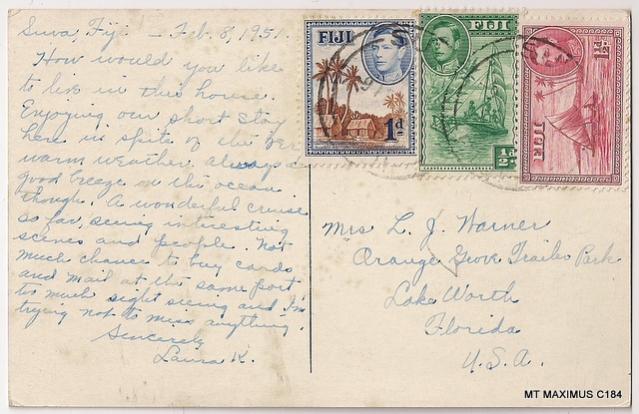 Suva, Fiji - Feb. 8, 1951.
How would you like
to live in this house.
Enjoying our short stay
here in spite of the
warm weather. Always a
good breeze on the ocean
though. A wonderful cruise
so far, seeing interesting
scenes and people. Not
much chance to buy cards
and mail at the same port
to much sight seeing and I'm
trying not to miss anything.
Sincerely
Laura K.
FIJI
1d
FIJI
1/2d
FIJI
1½d
Mrs L. J. Warner
Orange Grove Trailer Park
Lake Worth
Florida
U.S.A.
MT MAXIMUS C184